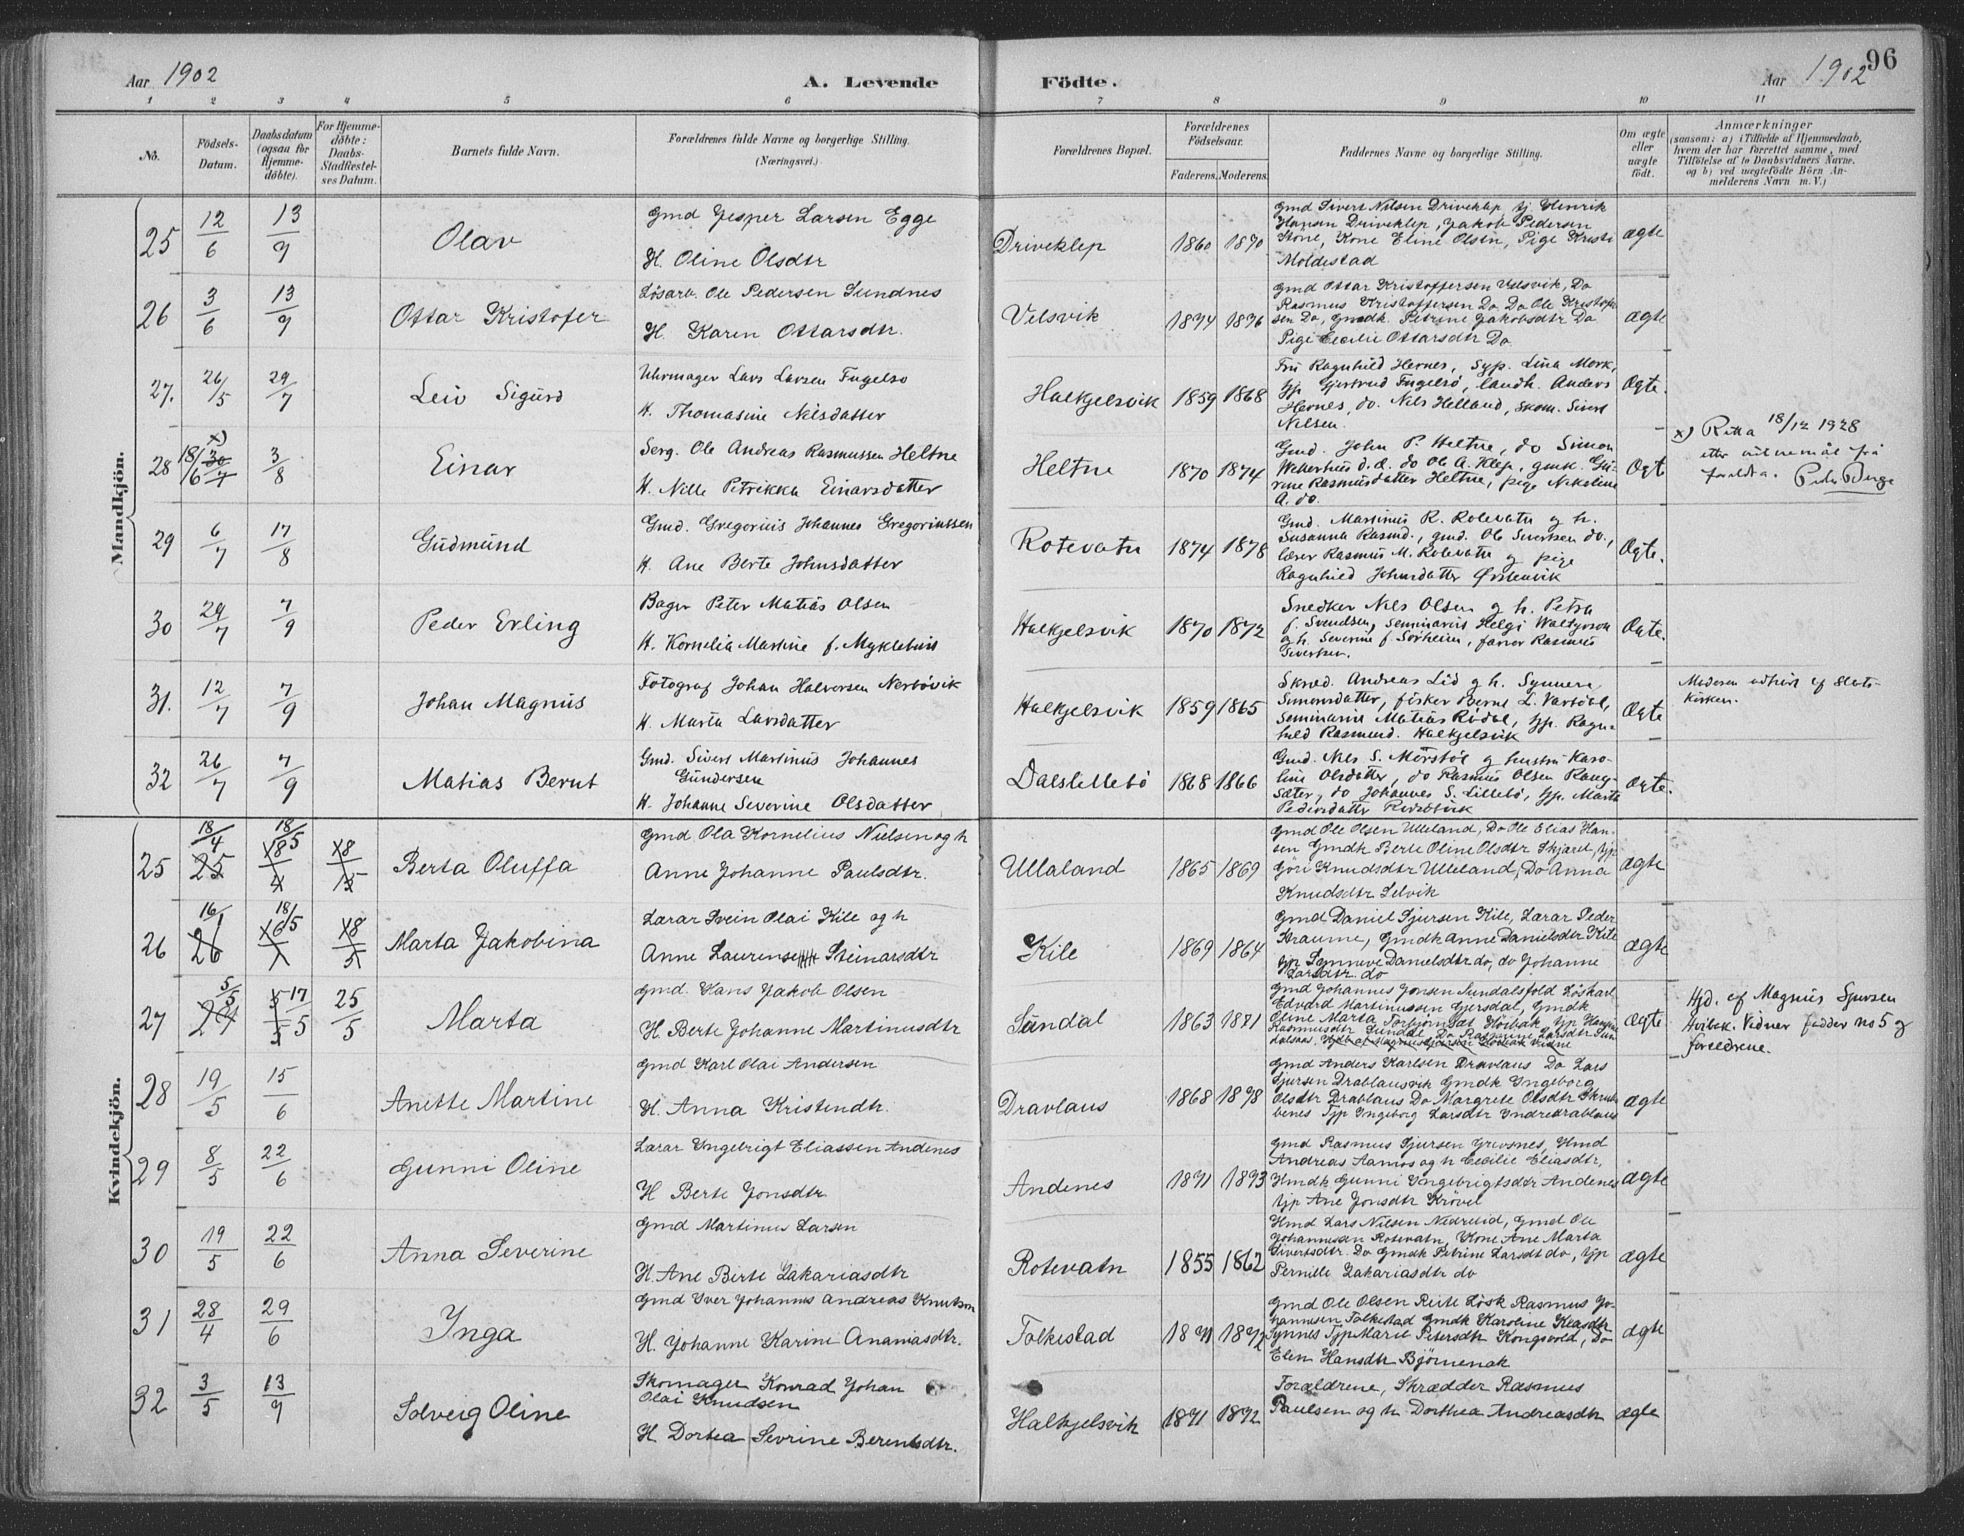 96
Aar 1902
A. Levende
Födte.
Aar 1902
1 2 3 4 5 6 7 8 9 10 11
No.
Födsels-Datum.
Daabsdatum (ogsaa for Hjemme-döbte).
For Hjemme-döbte: Daabs-Stadfæstel-ses Datum.
Barnets fulde Navn.
Forældrenes fulde Navne og borgerlige Stilling. (Næringsvei.)
Forældrenes Bopæl.
Forældrenes Födselsaar.
Faderens. Moderens.
Faddernes Navne og borgerlige Stilling.
Om ægte eller uægte födt.
Anmærkninger
(saasom: a) i Tilfælde af Hjemmedaab, hvem der har forrettet samme, med Tilföielse af to Daabsvidners Navne, og b) ved uægtefödte Börn An-melderens Navn m. V.)
Mandkjön.
25 12/6 13/9 Olav
Gmd Jesper Larsen Egge
H. Oline Olsdtr
Driveklep 1860 1870
Gmd Sivert Nilsen Driveklep, tj Henrik
Hansen Driveklep, Jakob Pedersen
Kone Eline Olsen, Pige Kristi
Moldestad
ægte
26 3/6 13/9 Ottar Kristofer
Løsarb. Ole Pedersen Sundnes
H. Karen Ottarsdtr.
Velsvik 1874 1876
Gmd Ottar Kristoffersen Velsvik, Do
Rasmus Kristoffersen Do Do Ole Kristofer
sen Do, Gmdk. Petrine Jakobsdtr Do
Pige Cecilie Ottarsdtr Do
ægte
27. 26/5 29/7 Leiv Sigurd
Uhrmager Lars Larsen Fugelsø
H. Thomasine Nilsdatter
Halkjelsvik 1859 1868
Fru Ragnhild Hernes, Syp. Lina Mork,
tjp Gjertrud Fugelsø, landh. Anders
Hernes, do. Nils Helland, skom. Sivert
Nilsen.
Ægte.
28 x) 18/6 30/7 3/8 Einar
Serg. Ole Andreas Rasmussen Heltne
H. Nille Petrikka Einarsdatter
Heltne 1870 1874
Gmd. John P. Heltne, do Simon
d. e. do Ole A. Klep, gmk.
rine Rasmusdatter Heltne, pige Nikoline
A. do.
Ægt
x) Retta 18/12 1928
etter vitnemål frå
foreldra. Peter Berge
29 6/7 17/8 Gudmund
Gmd. Gregorius Johannes Gregoriussen
H. Ane Berte Johnsdatter
Rotevatn 1874 1878
Gmd. Martinus R. Rotevatn og h.
Susanna Rasmd., gmd. Ole Sivertsen do.,
lærer Rasmus M. Rotevatn og pige
Ragnhild Johnsdatter Ørstenvik
Ægte.
30 29/7 7/9 Peder Erling
Bager Peter Matias Olsen
H. Kornelia Martine f. Myklebust
Halkjelsvik 1870 1872
Snedker Nils Olsen og h. Petra
f. Svendsen, Seminarist Helgi Waltyrson
og h. Severine f. Sørheim, farver Rasmus
Sivertsen.
Ægte.
31. 12/7 7/9 Johan Magnus
Fotograf Johan Halvorsen Nerbøvik
H. Marta Larsdatter
Halkjelsvik 1859 1865
Skræd. Andreas Lid og h. Synneve
Simonsdatter, fisker Bernt L. Vartdal,
Seminarist Matias Rødal, tjp. Ragn-
hild Rasmusd. Halkjelsvik
Ægte
Moderen udtraadt af Stats-
kirken.
32 26/7 7/9 Matias Bernt
Gmd. Sivert Martinus Johannes
Gundersen
H. Johanne Severine Olsdatter
Dalslillebø 1868 1866
Gmd. Nils S. Mørstøl og hustru Karo-
line Olsdatter, do Rasmus Olsen Raug-
sæter, do Johannes S. Lillebø, tjp. Marta
Pedersdatter
Ægte.
Kvindekjön.
25 18/4 25 18/5 18/4 18/5 Berta Oluffa
Gmd Ola Kornelius Nielsen og h
Anne Johanne Paulsdtr.
Ullaland 1865 1869
Gmd Ole Olsen Ulleland, Do Ole Elias Han-
sen Gmdk Berte Oline Olsdtr Skjaret, tjp
Göri Knudsdtr Ulleland, Do Anna
Knudsdtr Selvik
ægte
26 16/1 26 18/5 16/1 18/5 Marta Jakobina
Lærar Svein Olai Kile og h
Anne Laurense Steinarsdtr
Kile 1869 1864
Gmd Daniel Sjursen Kile, Lærar Peder
Straume, Gmdk Anne Danielsdtr Kile
tjp Synneve Danielsdtr do, do Johanne
Larsdtr do
ægte
27 5/5 24 5/5 17/5 25/5 Marta
Gmd. Hans Jakob Olsen
H. Berte Johanne Martinusdtr
Sundal 1863 1871
Gmd Johannes Jonsen Sundalsfold Löskarl
Edvard Martinussen Gjersdal, Gmdk
Oline Marta
Rasmusdtr Sundal, Do Rasmine Larsdtr Sun-
dalsaas.
ægte
Hjd. af Magnus Sjursen
Hvibak. Vidner fadder no 5 og
forældrene.
28 19/5 15/6 Anette Martine
Gmd Karl Olai Andersen
H. Anna Kristendtr.
Dravlaus 1868 1878
Gmd Anders Karlsen Dravlaus Do Lars
Sjursen Drablausvik Gmdk Ingeborg
Olsdtr Drablaus Do Margrete Olsdtr
benes Tjp Ingeborg Larsdtr Indredrablaus
ægte
29 8/5 22/6 Gunni Oline
Lærar Ingebrigt Eliassen Andenes
H Berte Jonsdtr
Andenes 1871 1873
Gmd Rasmus Sjursen Yrisnes, Hmd
Andreas Aamos og h Cecilie Eliasdtr,
Hmdk Gunni Ingebrigtsdtr Andenes
tjp Ane Jonsdtr Krövel
ægte
30 19/5 22/6 Anna Severine
Gmd Martinus Larsen
H. Ane Berte Zakariasdtr
Rotevatn 1855 1862
Hmd Lars Nilsen Nedrelid, Gmd Ole
Johannesen Rotevatn, Kone Ane Marta
Sivertsdtr. Do Gmdk Petrine Larsdt do, tjp
Pernille Zakariasdtr do
ægte
31 28/4 29/6 Inga
Gmd Iver Johannes Andreas Knutson
H. Johanne Karine Ananiasdtr.
Folkestad 1871 1872
Gmd Ole Olsen Reite Løsk Rasmus Jo-
hannesen Folkestad Gmdk Karoline Klasdtr
Synnes Tjp Marie Petersdtr Kongsvold, Do
Elen Hansdtr Bjørnenak
ægte
32 3/5 13/9 Solveig Oline
Skomager Konrad Johan
Olai Knudsen
H Dortea Sevrine Berentsdtr.
Halkjelsvik 1871 1872
Forældrene, Skrædder Rasmus
Paulsen og h Dorthea Andreasdtr
ægte